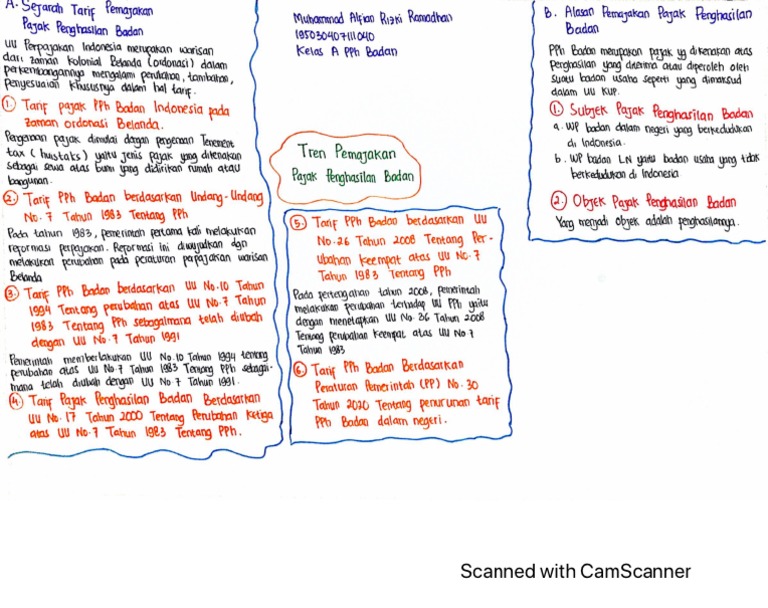 A. Sejarah Tarif Pemajakan
Pajak Penghasilan Badan
UU Perpajakan Indonesia merupakan warisan
dari zaman kolonial Belanda (ordonasi) dalam
perkembangannya mengalami perubahan, tambahan,
penyesuaian khususnya dalam hal tarif.
1 Tarif pajak PPh Badan Indonesia pada
zaman ordonasi Belanda.
Pergenaan pajak dimulai dengan pengenaan Tenement
tax (huistaks) yaitu jenis pajak yang dikenakan
sebagai sewa atas bumi yang didirikan rumah atau
bangunan.
2. Tarif PPh Badan berdasarkan Undang-Undang
No. 7 Tahun 1983 Tentang PPh
Pada tahun 1983, pemerintah pertama kali melakukan
reformasi perpajakan. Reformasi ini diwujudkan dgn
melakukan perubahan pada peraturan perpajakan warisan
Belanda
3. Tarif PPh Badan berdasarkan UU No. 10 Tahun
1994 Tentang perubahan atas UU No. 7 Tahun
1983 Tentang PPh sebagaimana telah diubah
dengan UU No. 7 Tahun 1991
Pemerintah memberlakukan UU No. 10 Tahun 1994 tentang
perubahan atas UU No 7 Tahun 1983 Tentang PPh sebagai-
mana telah diubah dengan UU No 7 Tahun 1991.
4. Tarif Pajak Penghasilan Badan Berdasarkan
UU No. 17 Tahun 2000 Tentang Perubahan Ketiga
atas UU No. 7 Tahun 1983 Tentang PPh.
Muhammad Alfian Rizki Ramadhan
195030407111040
Kelas A PPh Badan
Tren Pemajakan
Pajak Penghasilan Badan
5. Tarif PPh Badan berdasarkan UU
No. 26 Tahun 2008 Tentang Per-
ubahan Keempat atas UU No. 7
Tahun 1983 Tentang PPh
Pada pertengahan tahun 2008, pemerintah
melakukan perubahan terhadap UU PPh yaitu
dengan menetapkan UU No. 26 Tahun 2008
Tentang perubahan Keempat atas UU No 7
Tahun 1983
6. Tarif PPh Badan Berdasarkan
Peraturan Pemerintah (PP) No. 30
Tahun 2020 Tentang penurunan tarif
PPh Badan dalam negeri.
B. Alasan Pemajakan Pajak Penghasilan
Badan
PPh Badan merupakan pajak yg dikenakan atas
penghasilan yang diterima atau diperoleh oleh
suatu badan usaha seperti yang dimaksud
dalam UU KUP.
1. Subjek Pajak Penghasilan Badan
a. WP badan dalam negeri yang berkedudukan
di Indonesia.
b. WP badan LN yaitu badan usaha yang tidak
berkedudukan di Indonesia
2. Objek Pajak Penghasilan Badan
Yang menjadi objek adalah penghasilannya.
Scanned with CamScanner